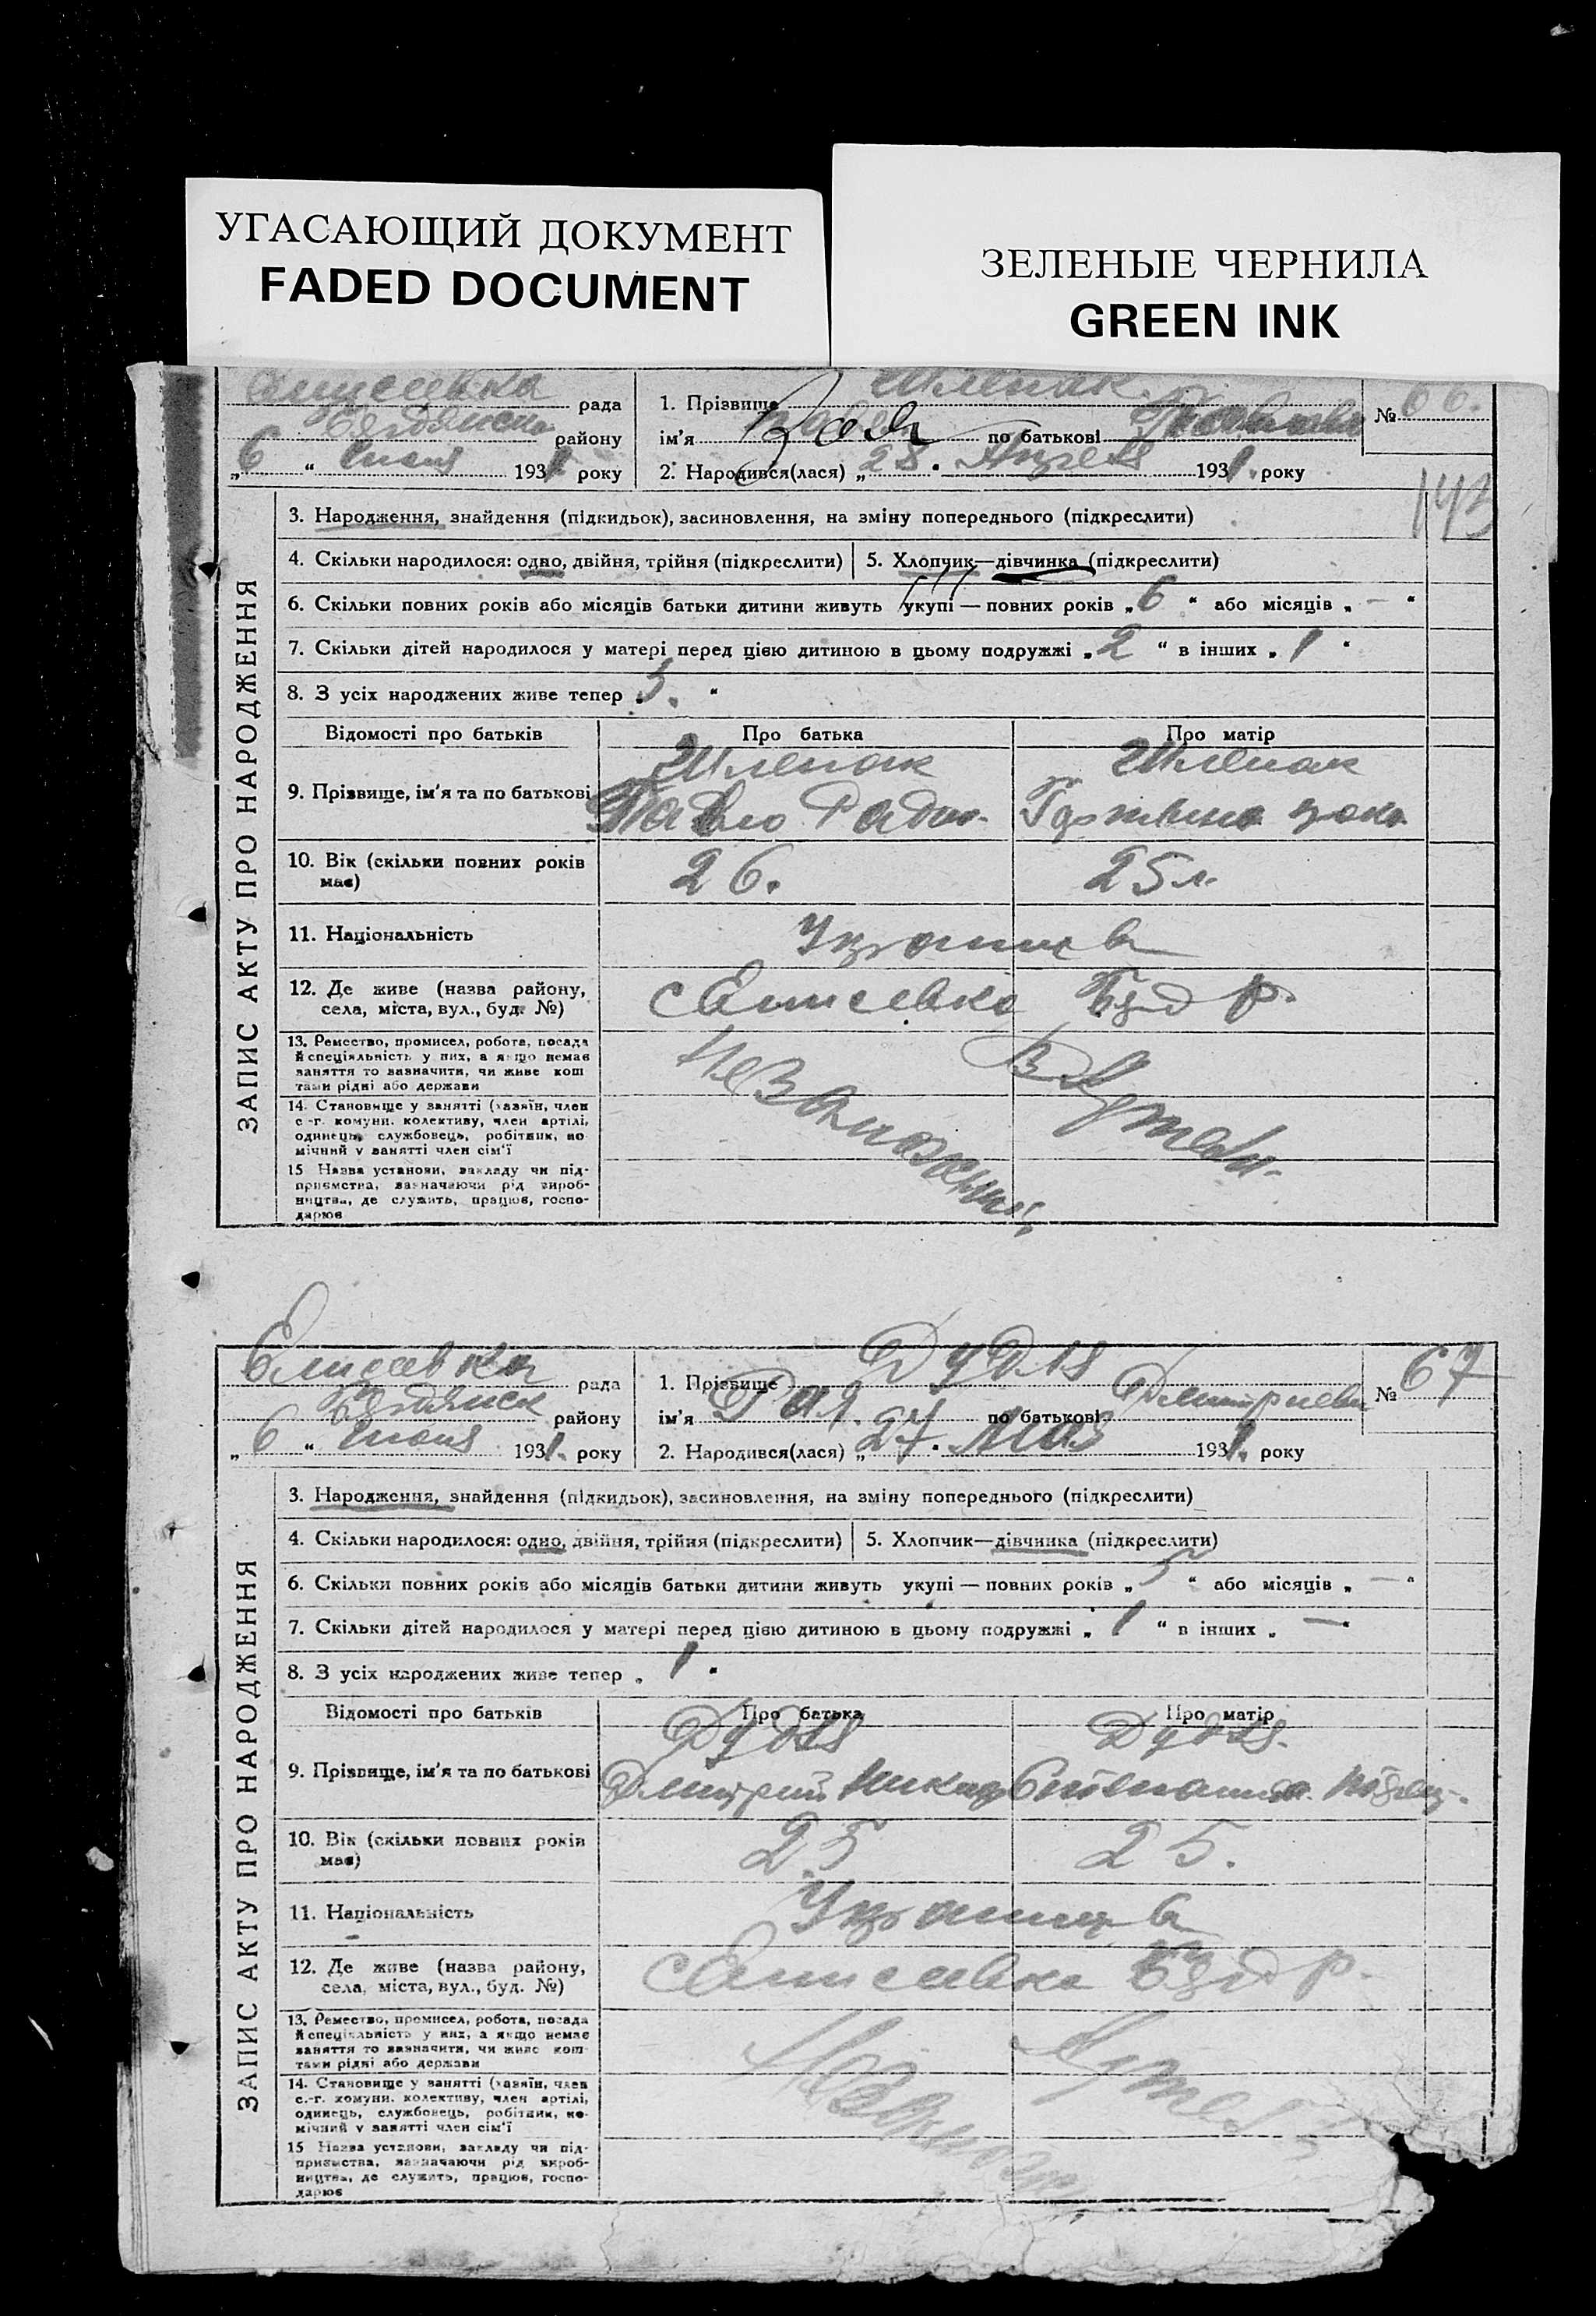 УГАСАЮЩИЙ ДОКУМЕНТ
FADED DOCUMENT
ЗЕЛЕНЫЕ ЧЕРНИЛА
GREEN INK
рада
району
„6“ 1931 року
1. Прізвище Шлепак
ім'я Зоя по батькові
2. Народився(лася) „28“ Апреля 1931. року
№ 66.
143
ЗАПИС АКТУ ПРО НАРОДЖЕННЯ
3. Народження, знайдення (підкидьок), засиновлення, на зміну попереднього (підкреслити)
4. Скільки народилося: одно, двійня, трійня (підкреслити)
5. Хлопчик—дівчинка (підкреслити)
6. Скільки повних років або місяців батьки дитини живуть укупі — повних років „6“ або місяців „—“
7. Скільки дітей народилося у матері перед цією дитиною в цьому подружжі „2“ в інших „1“
8. З усіх народжених живе тепер „3.“
Відомості про батьків Про батька Про матір
9. Прізвище, ім'я та по батькові
Шлепак Шлепак
Павло
10. Вік (скільки повних років має)
26. 25 л.
11. Національність
12. Де живе (назва району, села, міста, вул., буд. №)
с Елисеевка
13. Ремество, промисел, робота, посада й спеціяльність у них, а якщо немає заняття то зазначити, чи живе коштами рідні або держави
14. Становище у занятті (хазяїн, член с.-г. комуни, колективу, член артілі, одинець, службовець, робітник, помічний у занятті член сім'ї
15 Назва установи, закладу чи підприємства, зазначаючи рід виробництва, де служить, працює, господарює
рада
району
„6“ 1931. року
1. Прізвище Дудля
ім'я по батькові
2. Народився(лася) „27“ Мая 1931. року
№ 67
ЗАПИС АКТУ ПРО НАРОДЖЕННЯ
3. Народження, знайдення (підкидьок), засиновлення, на зміну попереднього (підкреслити)
4. Скільки народилося: одно, двійня, трійня (підкреслити)
5. Хлопчик—дівчинка (підкреслити)
6. Скільки повних років або місяців батьки дитини живуть укупі — повних років „5“ або місяців „—“
7. Скільки дітей народилося у матері перед цією дитиною в цьому подружжі „1“ в інших „—“
8. З усіх народжених живе тепер „1“
Відомості про батьків Про батька Про матір
9. Прізвище, ім'я та по батькові
Дудля Дудля.
Дмитрий
10. Вік (скільки повних років має)
25 25.
11. Національність
12. Де живе (назва району, села, міста, вул., буд. №)
с Елисеевка
13. Ремество, промисел, робота, посада й спеціяльність у них, а якщо немає заняття то зазначити, чи живе коштами рідні або держави
14. Становище у занятті (хазяїн, член с.-г. комуни, колективу, член артілі, одинець, службовець, робітник, помічний у занятті член сім'ї
15 Назва установи, закладу чи підприємства, зазначаючи рід виробництва, де служить, працює, господарює